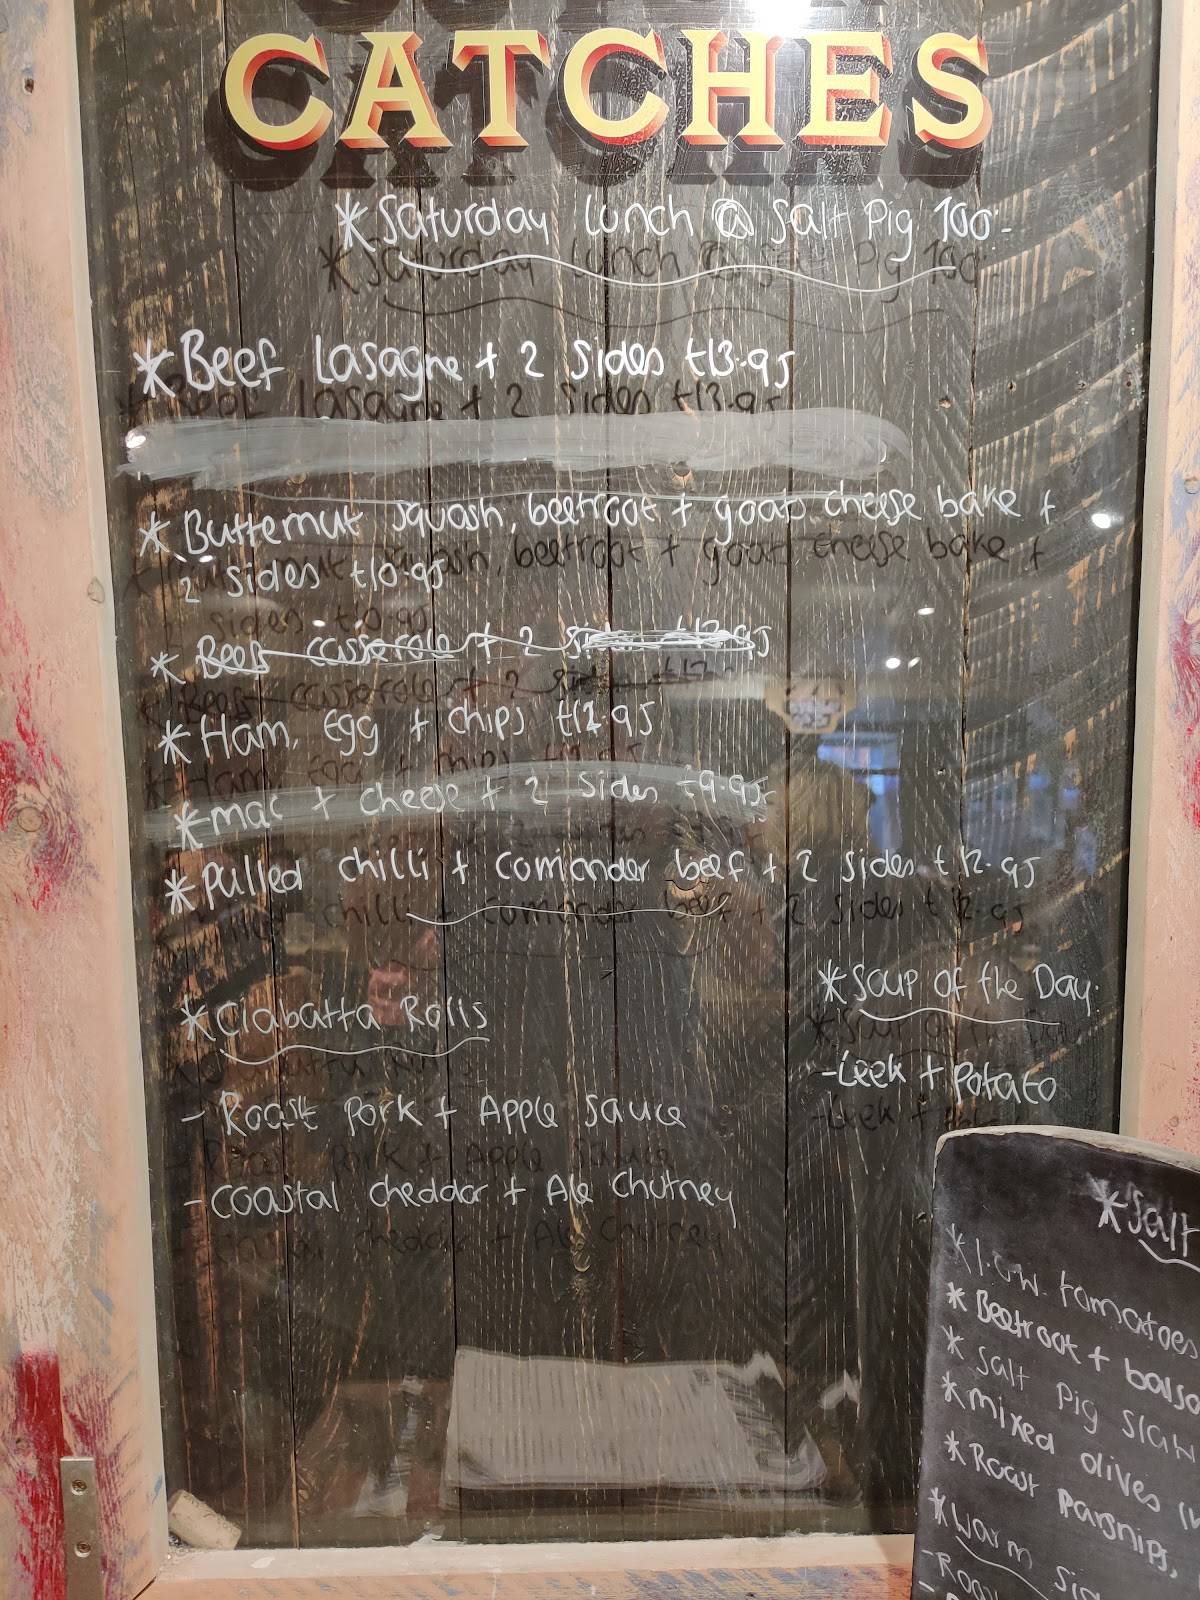 CATCHES
*Saturday lunch @ Salt Pig Too:-
*Beef Lasagne + 2 sides £13.95
*Butternut squash, beetroot + goats cheese bake +
2 sides £10.95
*Beef casserole + 2 sides £12.95
*Ham, Egg + chips £12.95
*mac + cheese + 2 sides £9.95
*Pulled chilli + coriander beef + 2 sides £12.95
*Soup of the Day:
-Leek + Potato
*Ciabatta Rolls
- Roast Pork + Apple Sauce
- Coastal cheddar + Ale Chutney
*Salt
*I.O.W. tomatoes
*Beetroot + balsa
*Salt Pig slaw
*mixed olives
*Roast Parsnips,
*Warm sid
-Roas